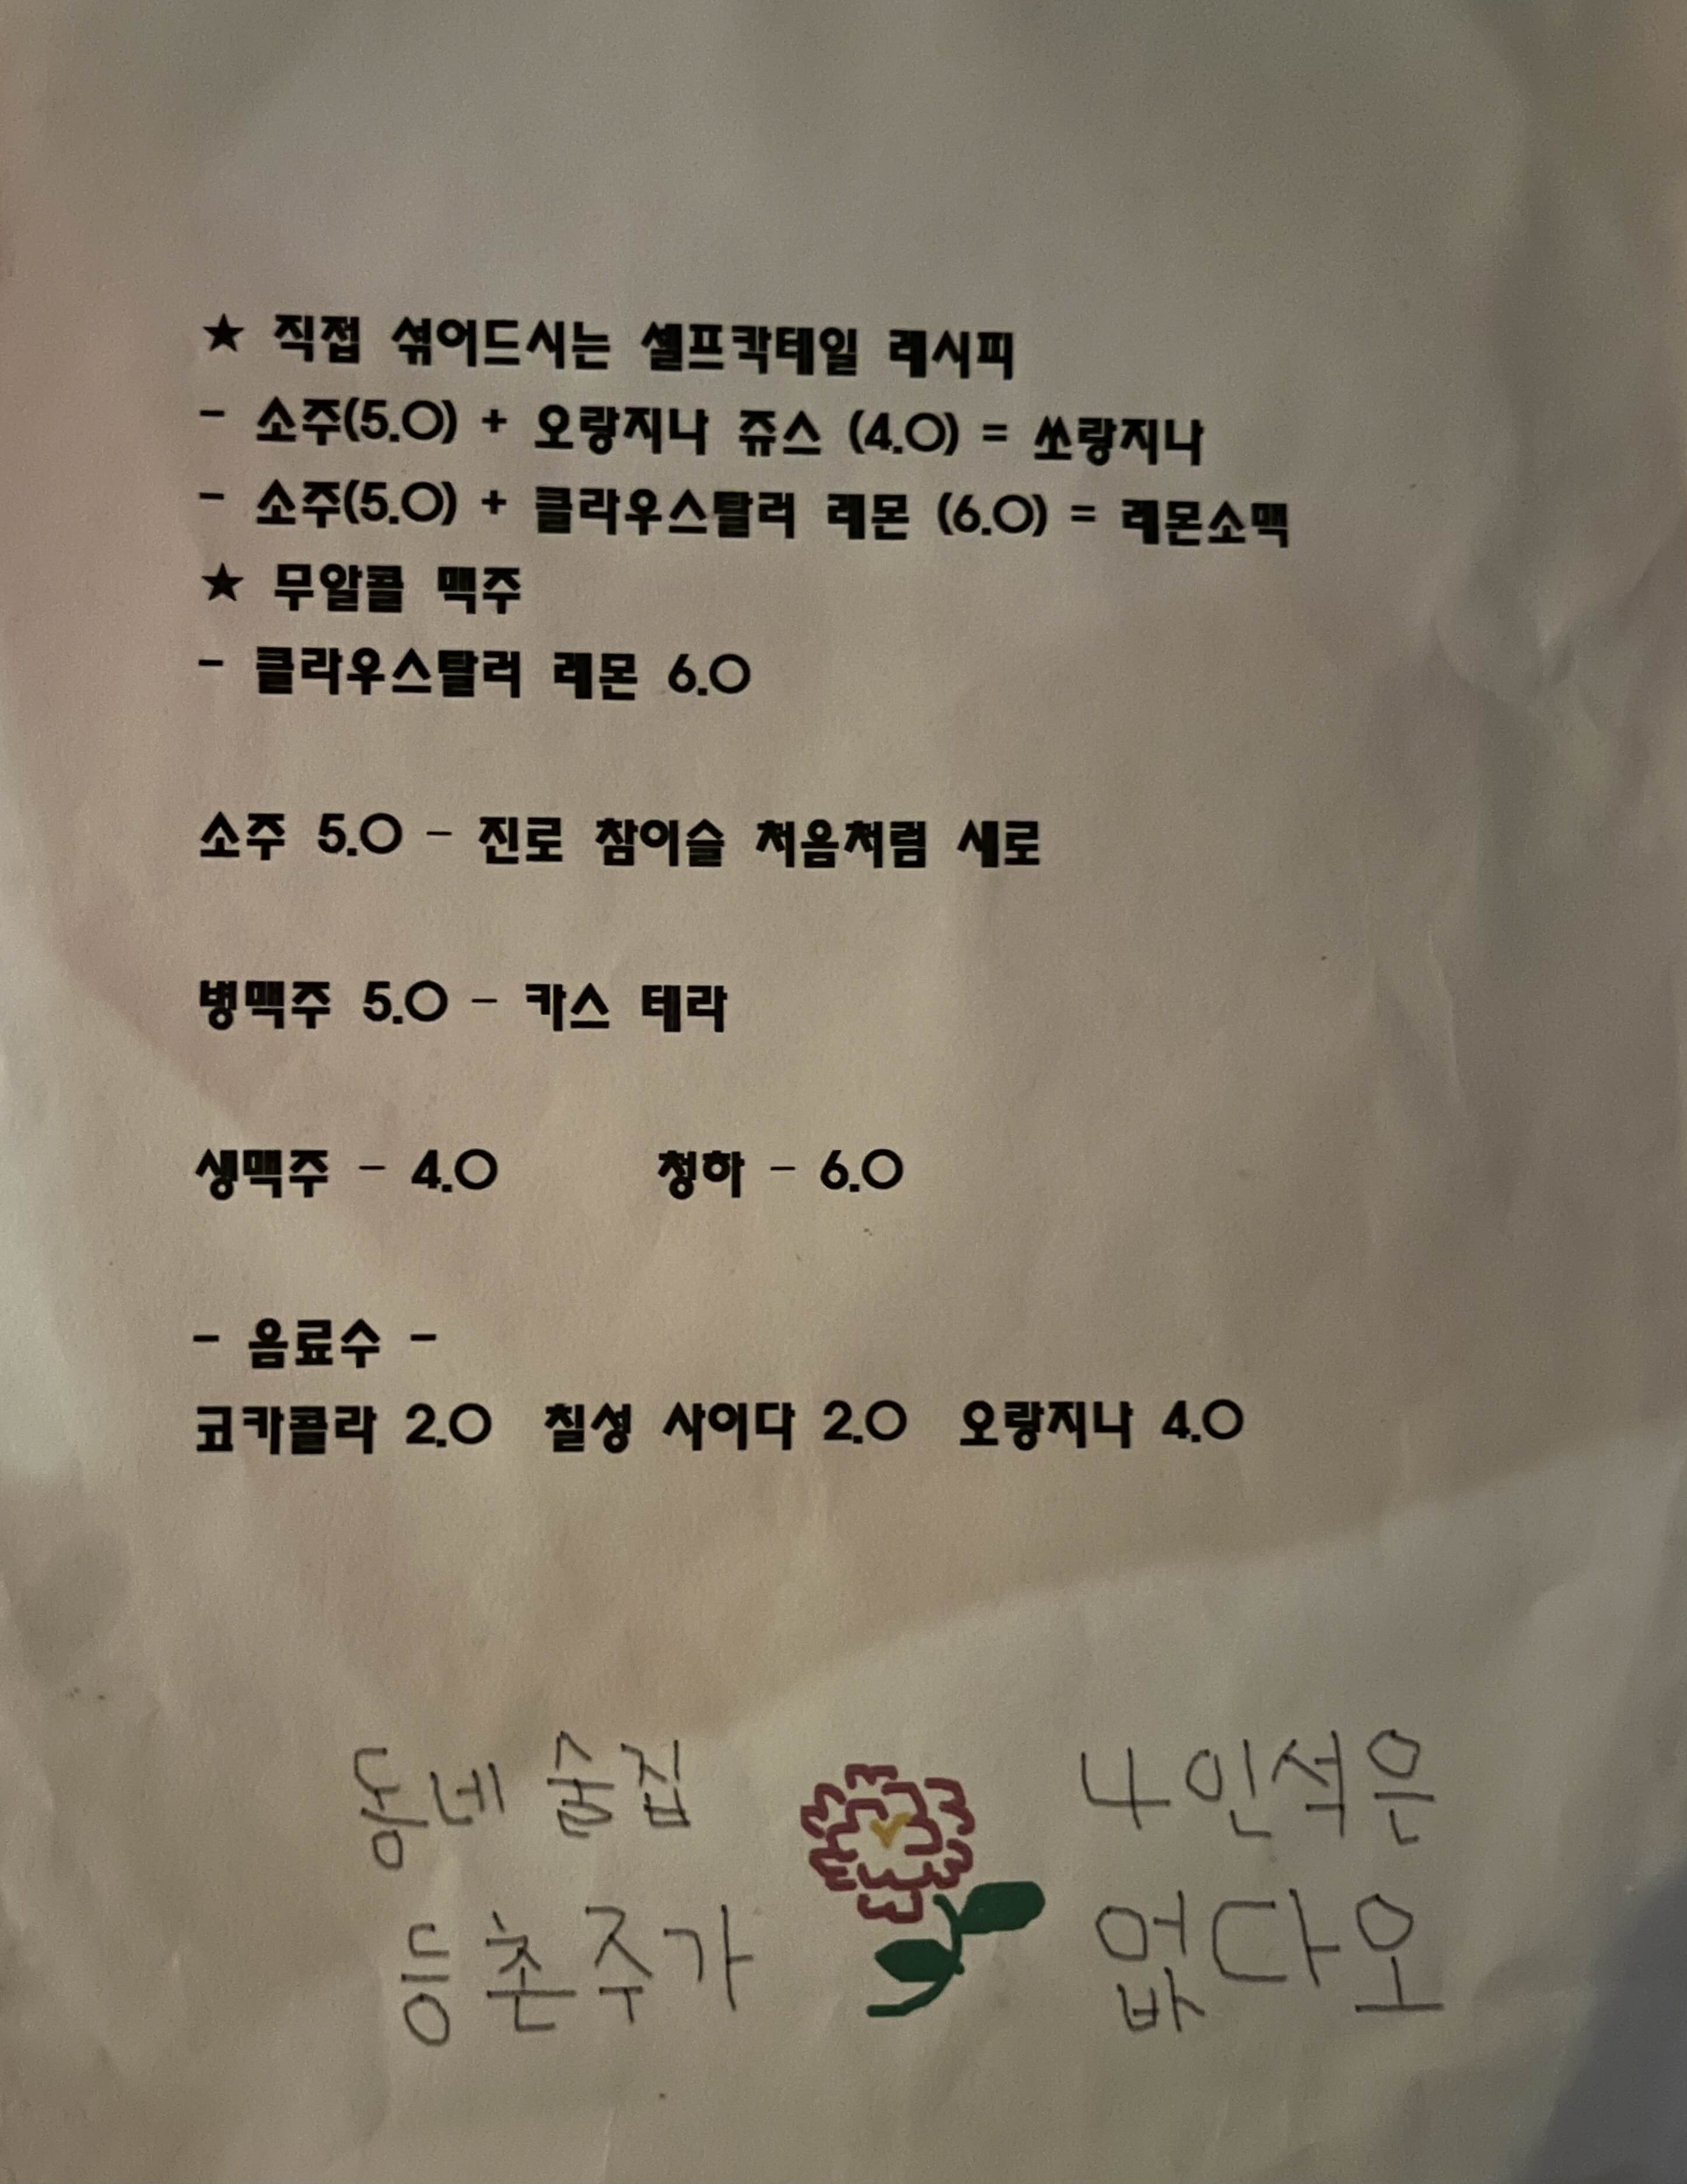 ★ 직접 섞어드시는 셀프칵테일 레시피
- 소주(5.0) + 오랑지나 쥬스 (4.0) = 쏘랑지나
- 소주(5.0) + 클라우스탈러 레몬 (6.0) = 레몬소맥
★ 무알콜 맥주
- 클라우스탈러 레몬 6.0
소주 5.0 - 진로 참이슬 처음처럼 새로
병맥주 5.0 - 카스 테라
생맥주 - 4.0 청하 - 6.0
- 음료수 -
코카콜라 2.0 칠성 사이다 2.0 오랑지나 4.0
동네 술집
등촌주가
나인석은
없다오